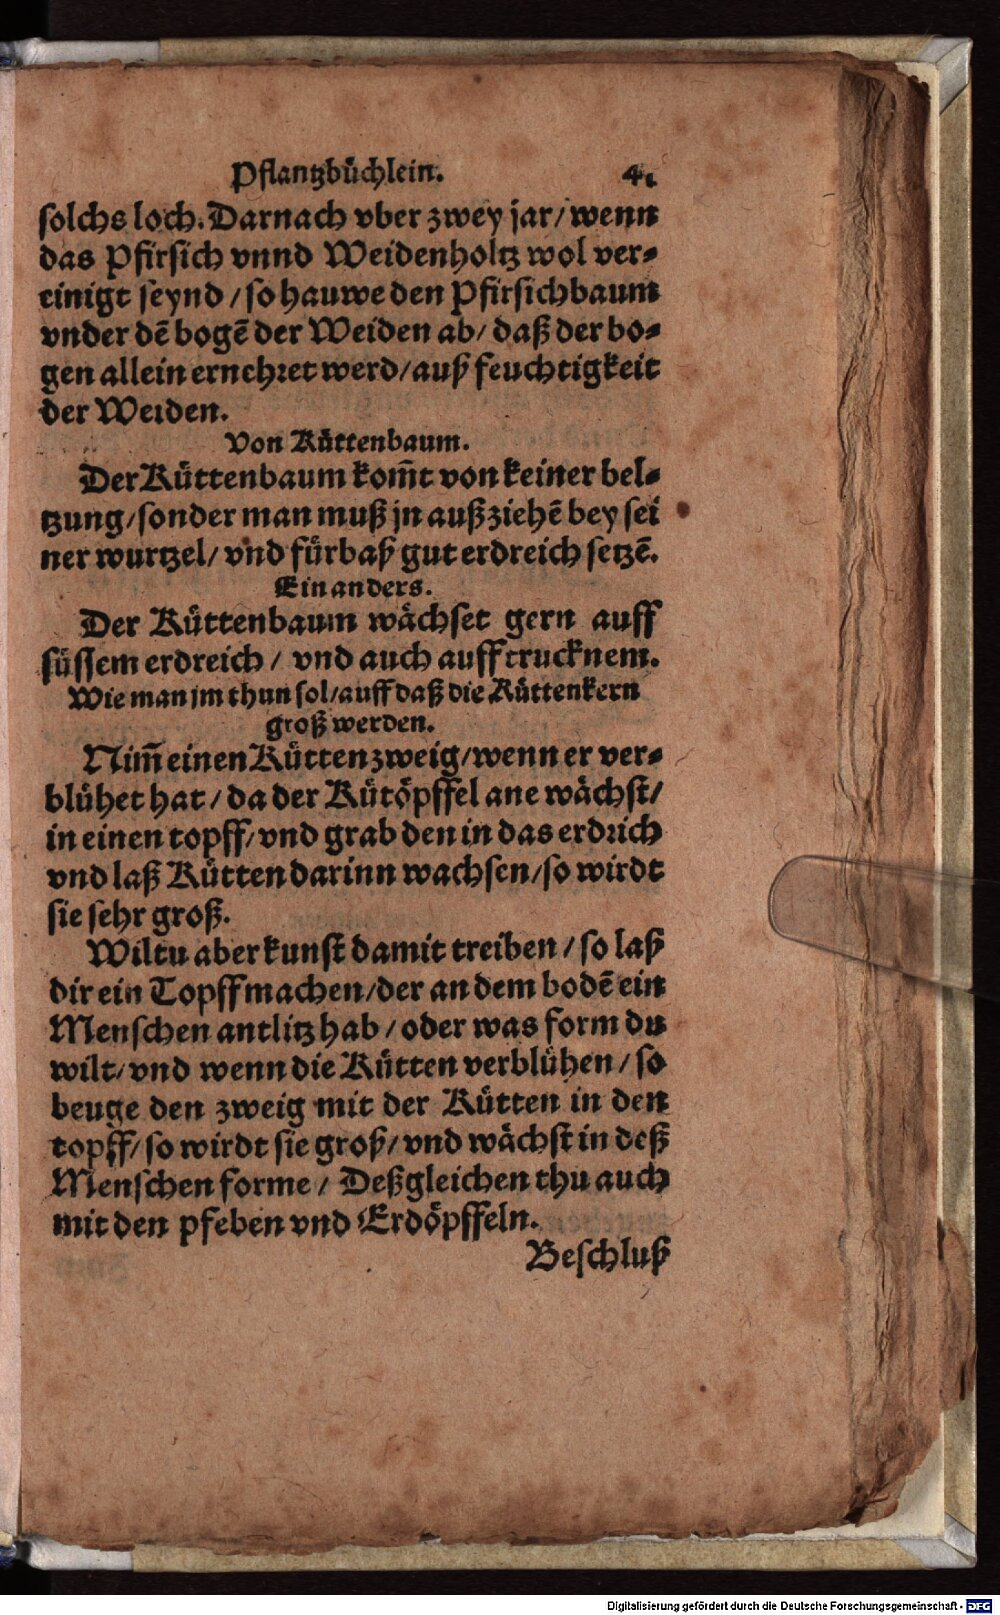 Pflantzbüchlein. 41
solchs loch. Darnach vber zwey jar/ wenn
das Pfirsich vnnd Weidenholtz wol ver-
einigt seynd / so hauwe den Pfirsichbaum
vnder dē bogē der Weiden ab/ daß der bo-
gen allein ernehret werd/ auß feuchtigkeit
der Weiden.
Von Küttenbaum.
Der Küttenbaum kom̄t von keiner bel-
tzung/ sonder man muß jn außziehē bey sei
ner wurtzel/ vnd fürbaß gut erdreich setzē.
Ein anders.
Der Küttenbaum wächset gern auff
süssem erdreich / vnd auch auff trucknem.
Wie man jm thun sol/ auff daß die Küttenkern
groß werden.
Nim̄ einen Küttenzweig/ wenn er ver-
blühet hat / da der Kütöpffel ane wächst/
in einen topff/ vnd grab den in das erdrich
vnd laß Kütten darinn wachsen/ so wirdt
sie sehr groß.
Wiltu aber kunst damit treiben / so laß
dir ein Topff machen/ der an dem bodē ein
Menschen antlitz hab / oder was form du
wilt/ vnd wenn die Kütten verblühen / so
beuge den zweig mit der Kütten in den
topff/ so wirdt sie groß/ vnd wächst in deß
Menschen forme / Deßgleichen thu auch
mit den pfeben vnd Erdöpffeln.
Beschluß
Digitalisierung gefördert durch die Deutsche Forschungsgemeinschaft - DFG